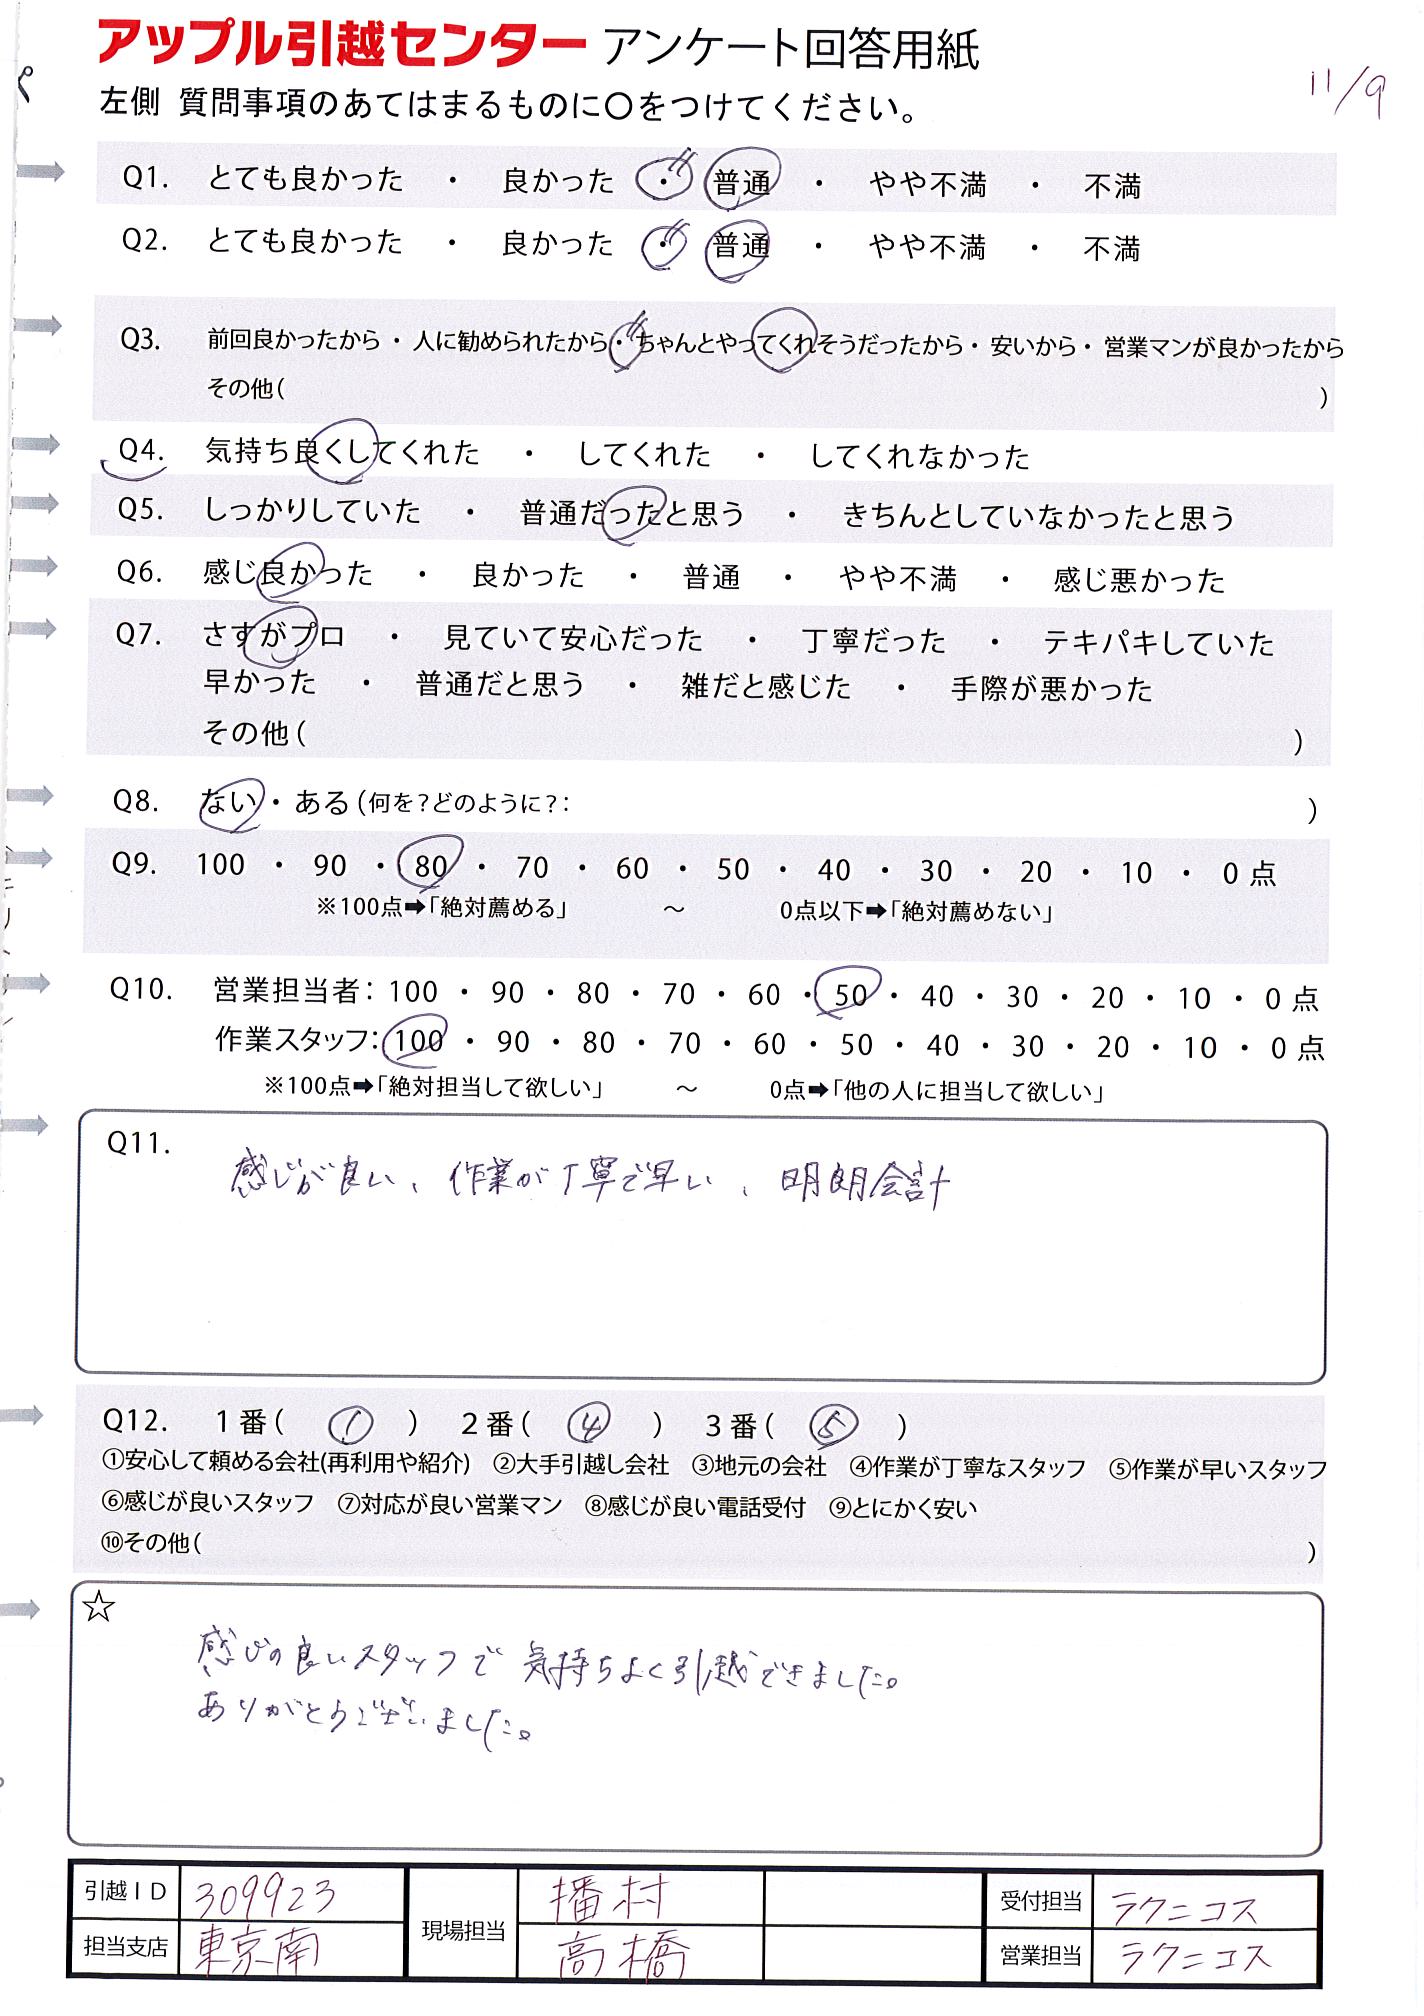 アップル引越センター アンケート回答用紙
11/9
左側 質問事項のあてはまるものに〇をつけてください。
Q1. とても良かった ・ 良かった ・ 普通 ・ やや不満 ・ 不満
Q2. とても良かった ・ 良かった ・ 普通 ・ やや不満 ・ 不満
Q3. 前回良かったから・人に勧められたから・ちゃんとやってくれそうだったから・安いから・営業マンが良かったから
その他( )
Q4. 気持ち良くしてくれた ・ してくれた ・ してくれなかった
Q5. しっかりしていた ・ 普通だったと思う ・ きちんとしていなかったと思う
Q6. 感じ良かった ・ 良かった ・ 普通 ・ やや不満 ・ 感じ悪かった
Q7. さすがプロ ・ 見ていて安心だった ・ 丁寧だった ・ テキパキしていた
早かった ・ 普通だと思う ・ 雑だと感じた ・ 手際が悪かった
その他( )
Q8. ない・ある(何を?どのように?: )
Q9. 100 ・ 90 ・ 80 ・ 70 ・ 60 ・ 50 ・ 40 ・ 30 ・ 20 ・ 10 ・ 0 点
※100点➡「絶対薦める」 ～ 0点以下➡「絶対薦めない」
Q10. 営業担当者: 100 ・ 90 ・ 80 ・ 70 ・ 60 ・ 50 ・ 40 ・ 30 ・ 20 ・ 10 ・ 0 点
作業スタッフ: 100 ・ 90 ・ 80 ・ 70 ・ 60 ・ 50 ・ 40 ・ 30 ・ 20 ・ 10 ・ 0 点
※100点➡「絶対担当して欲しい」 ～ 0点➡「他の人に担当して欲しい」
Q11.
感じが良い、作業が丁寧で早い、明朗会計
Q12. 1番( ① ) 2番( ④ ) 3番( ⑤ )
①安心して頼める会社(再利用や紹介) ②大手引越し会社 ③地元の会社 ④作業が丁寧なスタッフ ⑤作業が早いスタッフ
⑥感じが良いスタッフ ⑦対応が良い営業マン ⑧感じが良い電話受付 ⑨とにかく安い
⑩その他( )
☆
感じの良いスタッフで気持ちよく引越できました。
ありがとうございました。
引越ID 309923 現場担当 播村 受付担当 ラクニコス
担当支店 東京南 高橋 営業担当 ラクニコス